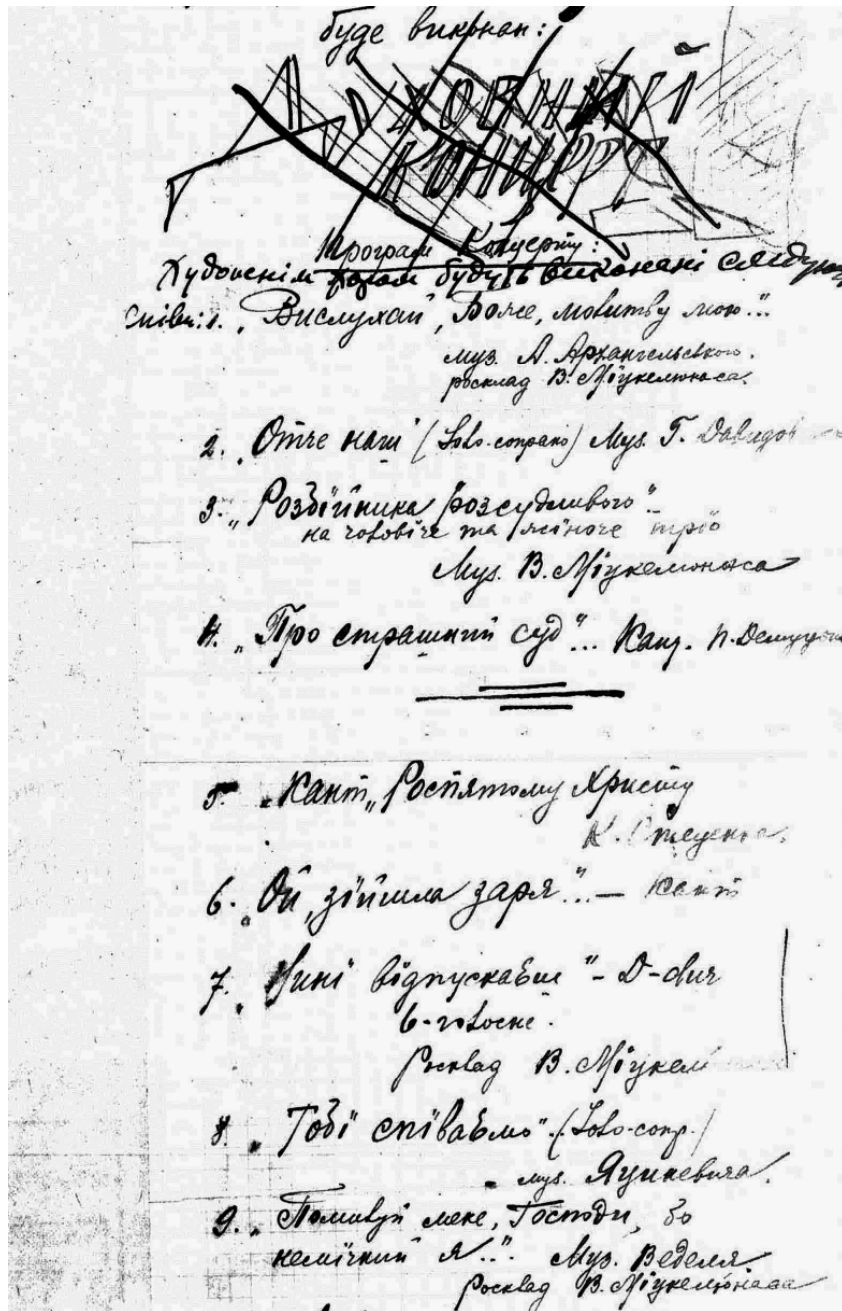 буде виконан:
ДУХОВНИЙ
КОНЦЕРТ
Програм Концерту:
Художнім хором будуть виконані слідуючі
співи: 1. „Вислухай, Боже, молитву мою..."
муз. А. Архангельського.
росклад В. Міцкелюнаса.
2. „Отче наш" (Solo-сопрано) Муз. Г. Давидов
3. „Розбійника розсудливого"
на чоловіче та жіноче тріо
Муз. В. Міцкелюнаса
4. „Про страшний суд"... Кант. П. Демуцьк
5. „Кант „Роспятому Христу
К. Стеценка.
6. „Ой, зійшла заря"... – Кант
7. „Нині відпускаєш" – D-dur
6-голосне.
росклад В. Міцкел
8. „Тобі співаємо" (Solo-сопр.)
муз. Яциневича.
9. „Помилуй мене, Господи, бо
немічний я..." Муз. Веделя
росклад В. Міцкелюнаса